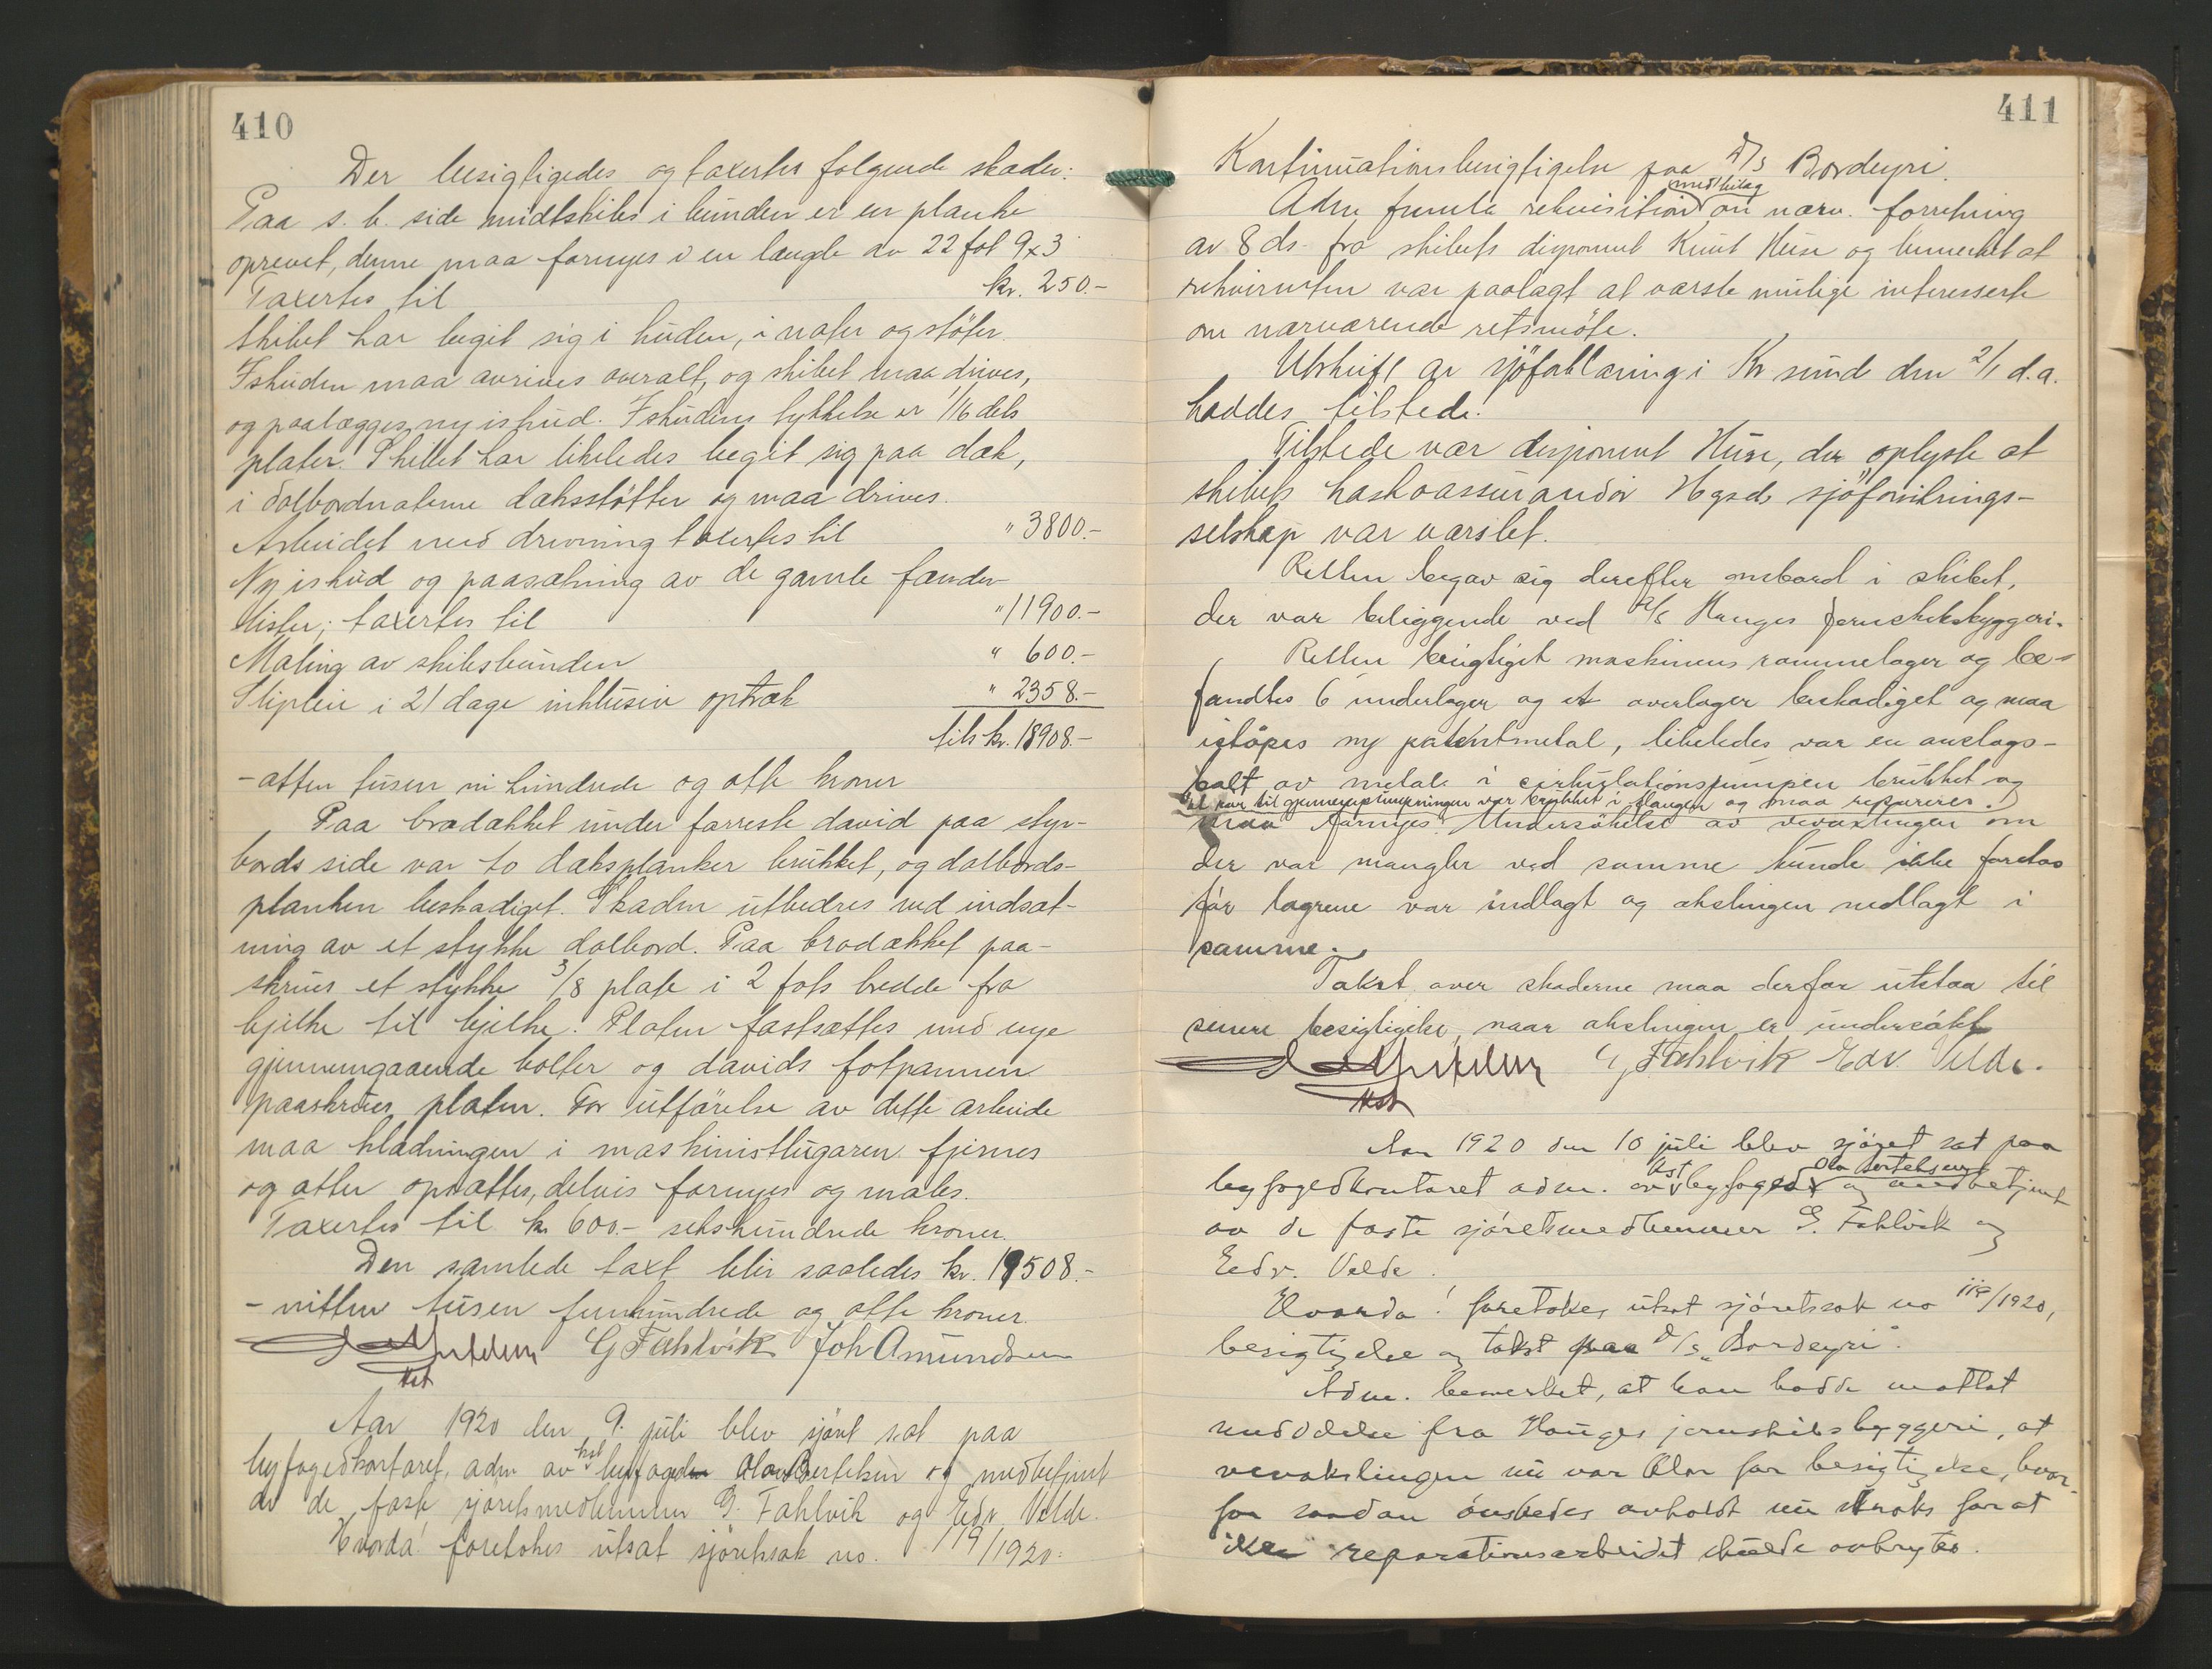 410
Der besigtigedes og taxertes følgende skader:
Paa s. b. side midtskibs i bunden er en planke
oprevet, denne maa fornyes i en længde av 22 fot 9x3
Taxertes til kr. 250.-
Skibet har begit sig i huden, i nater og støter.
Ishuden maa avrives overalt, og skibet maa drives,
og paalægges ny ishud. Ishudens tykkelse er 1/16 dels
plater. Skibet har likeledes begit sig paa dæk,
i dolbordnaterne dæksstøtter og maa drives.
Arbeidet med drivning taxertes til " 3800.-
Ny ishud og paasætning av de gamle fender-
lister; taxertes til " 11900.-
Maling av skibsbunden " 600.-
Slipleie i 21 dage inklusiv optræk " 2358.-
tils kr. 18908.-
- atten tusen ni hundrede og otte kroner
Paa brodækket under forreste david paa styr-
bords side var to dæksplanker brukket, og dolbords-
planken beskadiget. Skaden utbedres ved indsæt-
ning av et stykke dolbord. Paa brodækket paa-
skrues et stykke 3/8 plate i 2 fots bredde fra
bjelke til bjelke. Platen fastsættes med nye
gjennemgaaende bolter og davids fotpannen
paaskrues platen. For utførelse av dette arbeide
maa klædningen i maskinistlugaren fjernes
og atter opsættes, delvis fornyes og males.
Taxertes til kr. 600.- sekshundrede kroner.
Den samlede taxt blir saaledes kr. 19508.-
- nitten tusen femhundrede og otte kroner.
G Fahlvik Joh Amundsen
kst
Aar 1920 den 9. juli blev sjöret sat paa
byfogedkontoret, adm av kst byfoged Olav Bertelsen og medbetjent
av de faste sjöretsmedlemmer G. Fahlvik og Edv. Velde.
Hvorda! foretokes utsat sjöretssak no. 119/1920:
411
Kontinuationsbesigtigelse paa D/S Bordeyri.
Adm fremla rekvisition med bilag om nærv. forretning
av 8 ds. fra skibets disponent Knut Huse og bemerket at
rekvirenten var paalagt at varsle mulige interesserte
om nærværende retsmöte.
Utskrift av sjöforklaring i Kr sund den 2/1 d.a.
haddes tilstede.
Tilstede var disponent Huse, der oplyste at
skibets kaskoassurandör Hgsds sjöforsikrings-
selskap var varslet.
Retten begav sig derefter ombord i skibet,
der var beliggende ved A/S Hauges jernskibsbyggeri.
Retten besigtiget maskinens rammelager og be-
fandtes 6 underlager og et overlager beskadiget og maa
istöpes ny patentmetal, likeledes var en anslags-
bolt av metal i cirkulationspumpen brukket og
et rør til gjennempumpningen var brukket i flangen og maa repareres.
maa fornyes. Undersökelse av vevaxlingen om
der var mangler ved samme kunde ikke foretas
för lagrene var indlagt og akslingen nedlagt i
samme.
Takst over skaderne maa derfor utstaa til
senere besigtigelse, naar akslingen er undersökt
G Fahlvik Edv. Velde.
kst
Aar 1920 den 10 juli blev sjöret sat paa
byfogedkontoret adm. av kst byfoged Olav Bertelsen og medbetjent
av de faste sjöretsmedlemmer G. Fahlvik og
Edv. Velde.
Hvorda! foretokes utsat sjöretssak no 119/1920,
besigtigelse og takst paa D/S "Bordeyri".
Adm. bemerket, at han hadde mottat
meddelelse fra Hauges jernskibsbyggeri, at
vevakslingen nu var klar for besigtigelse, hvor-
for saadan önskedes avholdt nu straks for at
ikke reparationsarbeidet skulde avbrytes.